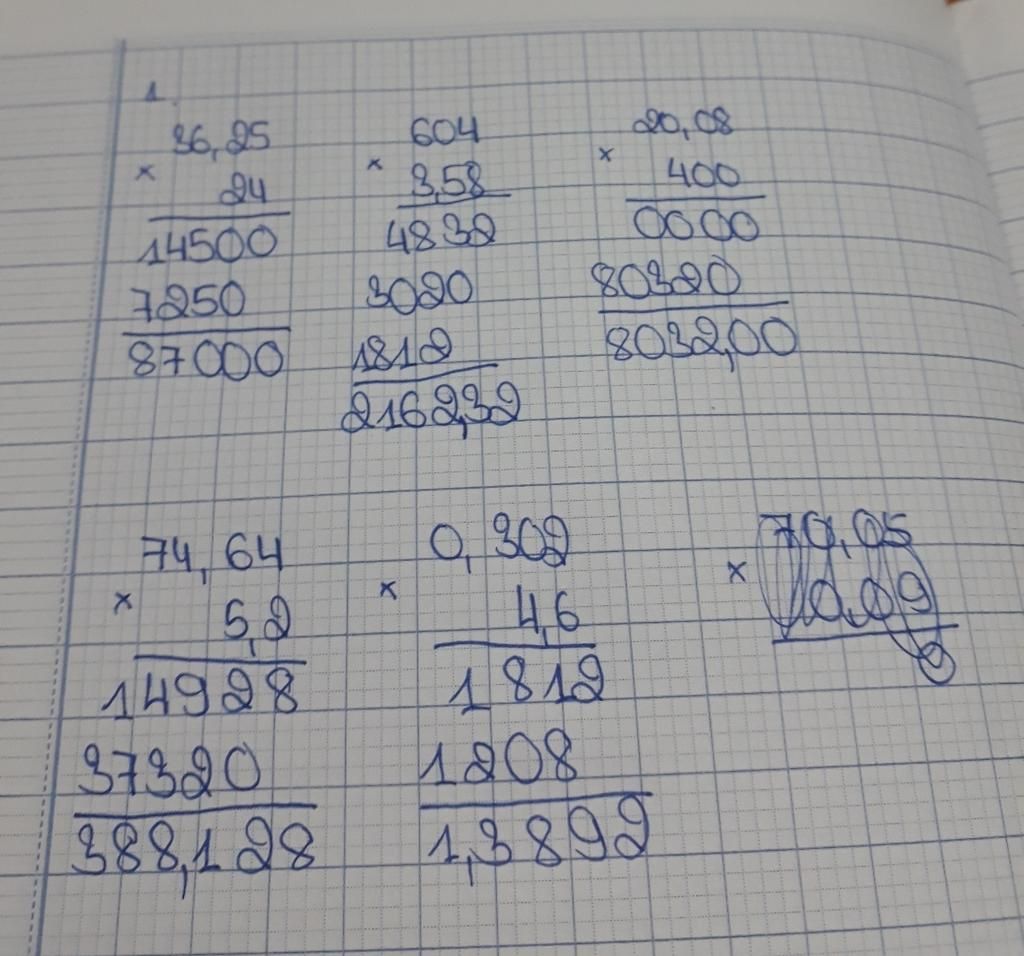 1.
36,25
× 24
14500
7250
87000
604
× 3,58
4832
3020
1812
2162,32
20,08
× 400
0000
80320
8032,00
74,64
× 5,2
14928
37320
388,128
0,302
× 4,6
1812
1208
1,3892
70,05
×